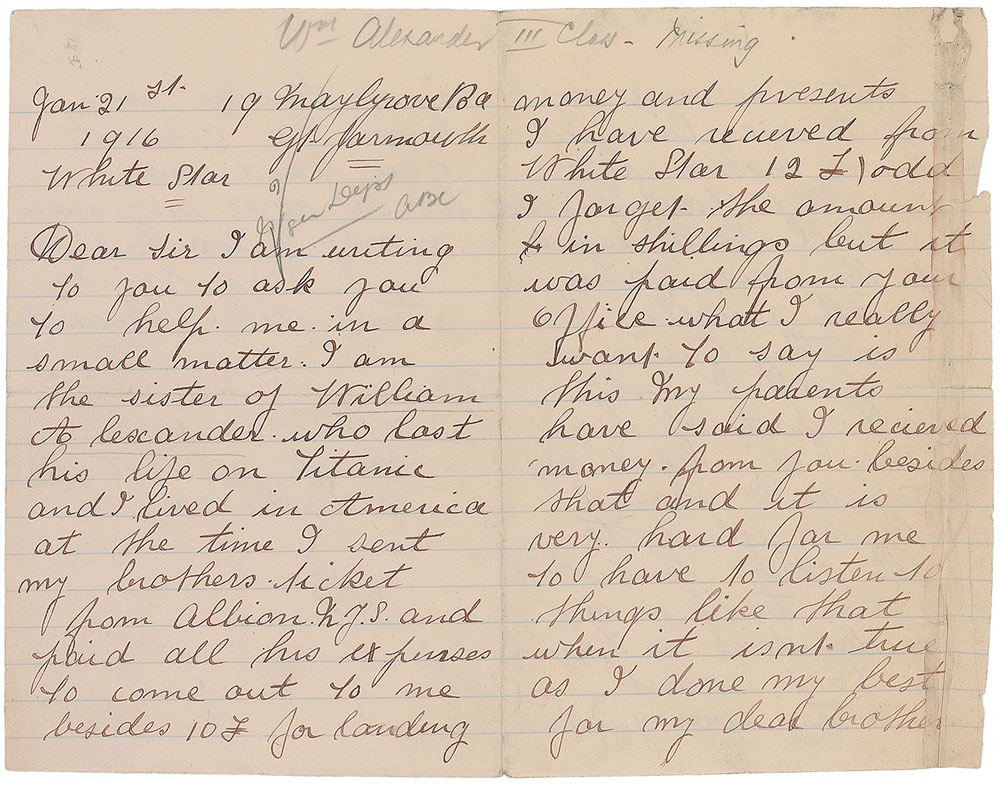 Wm Alexander III Class - Missing.
Jan 21st. 19 Maygrove Rd
1916 Gt Yarmouth
White Star
Dept
ABC
Dear Sir I am writing
to you to ask you
to help. me. in a
small matter. I am
the sister of William
Alexander. who lost
his life on Titanic
and I lived in America
at the time I sent
my brothers. ticket
from Albion. N.Y.S. and
paid all his expenses
to come out to me
besides 10£ for landing
money and presents
I have recieved from
White Star 12 £ odd
I forget. the amount
in shillings but it
was paid from your
Office. what I really
want. to say is
this My parents
have said I recieved
money. from you. besides
that and it is
very. hard for me
to have to listen to
things like that
when it isnt. true
as I done my best
for my dear brother